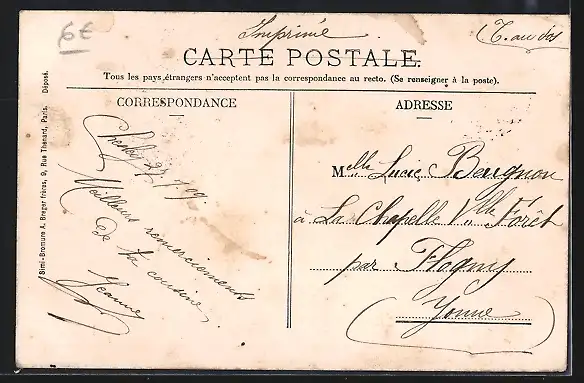 6€
Imprimé
T. au dos
CARTE POSTALE.
Tous les pays étrangers n'acceptent pas la correspondance au recto. (Se renseigner à la poste).
CORRESPONDANCE
Chesley 27/1 09.
Meilleurs remerciements
de ta cousine,
Jeanne
ADRESSE
Melle Lucie Beugnon
à La Chapelle Vlle Forêt
par Flogny
Yonne
Simi-Bromure A. Breger frères, 9, Rue Thénard, Paris. Déposé.